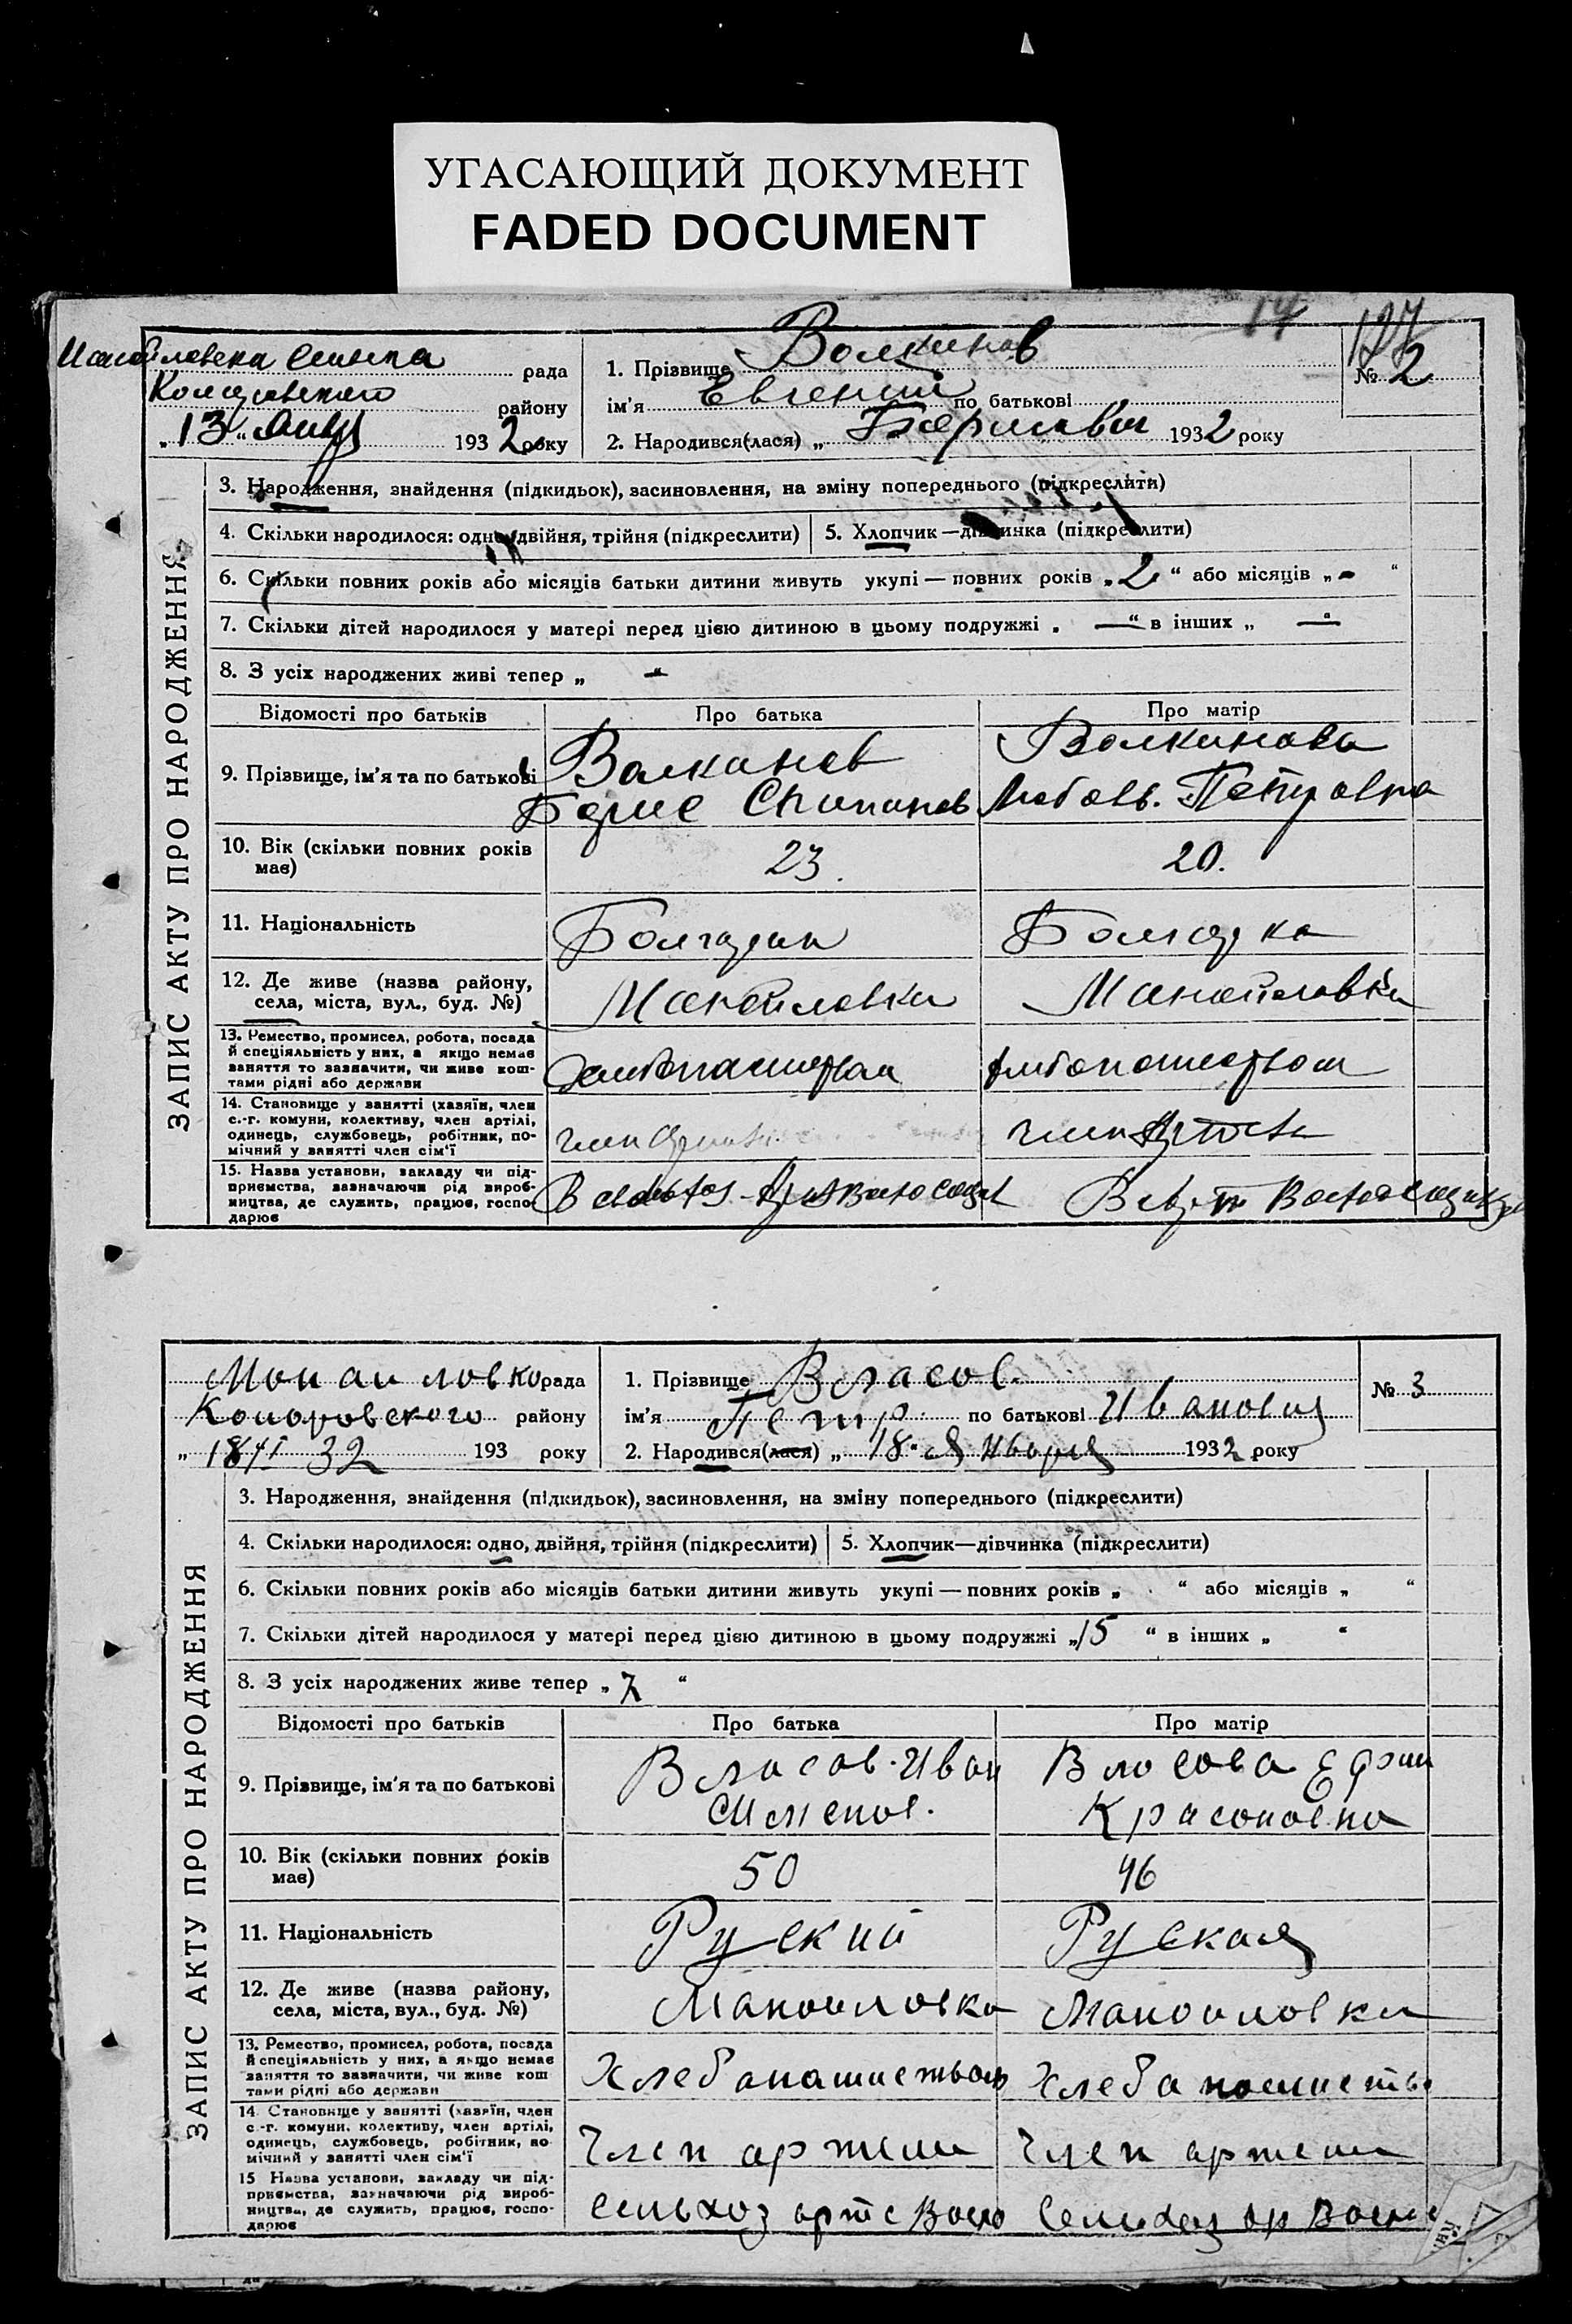 УГАСАЮЩИЙ ДОКУМЕНТ
FADED DOCUMENT
14
127
рада
району
„13“ Янв 1932 року
1. Прізвище Волканов
ім'я Евгений по батькові
2. Народився(лася) „ Борисович 1932 року
№ 2
ЗАПИС АКТУ ПРО НАРОДЖЕННЯ
3. Народження, знайдення (підкидьок), засиновлення, на зміну попереднього (підкреслити)
4. Скільки народилося: одно, двійня, трійня (підкреслити) 5. Хлопчик—дівчинка (підкреслити)
6. Скільки повних років або місяців батьки дитини живуть укупі — повних років „2“ або місяців „-“
7. Скільки дітей народилося у матері перед цією дитиною в цьому подружжі „—“ в інших „—“
8. З усіх народжених живі тепер „-“
Відомості про батьків Про батька Про матір
9. Прізвище, ім'я та по батькові
Волканов
Борис
Волканова
Любовь. Петровна
10. Вік (скільки повних років
має)
23.
20.
11. Національність
Болгарин
Болгарка
12. Де живе (назва району,
села, міста, вул., буд. №)
Манойловка
Манойловка
13. Ремество, промисел, робота, посада
й спеціяльність у них, а якщо немає
заняття то зазначити, чи живе кош-
тами рідні або держави
14. Становище у занятті (хазяїн, член
с.-г. комуни, колективу, член артілі,
одинець, службовець, робітник, по-
мічний у занятті член сім'ї
член
член
15. Назва установи, закладу чи під-
приємства, зазначаючи рід вироб-
ництва, де служить, працює, госпо-
дарює
Маноиловко рада
району
„18/I 32 193 року
1. Прізвище Власов
ім'я Петр по батькові Иванович
2. Народився(лася) „18“ Января 1932 року
№ 3
ЗАПИС АКТУ ПРО НАРОДЖЕННЯ
3. Народження, знайдення (підкидьок), засиновлення, на зміну попереднього (підкреслити)
4. Скільки народилося: одно, двійня, трійня (підкреслити) 5. Хлопчик—дівчинка (підкреслити)
6. Скільки повних років або місяців батьки дитини живуть укупі — повних років „ “ або місяців „ “
7. Скільки дітей народилося у матері перед цією дитиною в цьому подружжі „15 “ в інших „ “
8. З усіх народжених живе тепер „7 “
Відомості про батьків Про батька Про матір
9. Прізвище, ім'я та по батькові
Власов Иван
Власова
10. Вік (скільки повних років
має)
50
46
11. Національність
Руский
Руская
12. Де живе (назва району,
села, міста, вул., буд. №)
Маноиловка
Маноиловка
13. Ремество, промисел, робота, посада
й спеціяльність у них, а якщо немає
заняття то зазначити, чи живе кош
тами рідні або держави
14. Становище у занятті (хазяїн, член
с.-г. комуни, колективу, член артілі,
одинець, службовець, робітник, по
мічний у занятті член сім'ї
Член артели
Член артели
15 Назва установи, закладу чи під-
приємства, зазначаючи рід вироб-
ництва, де служить, працює, госпо-
дарює
сельхоз